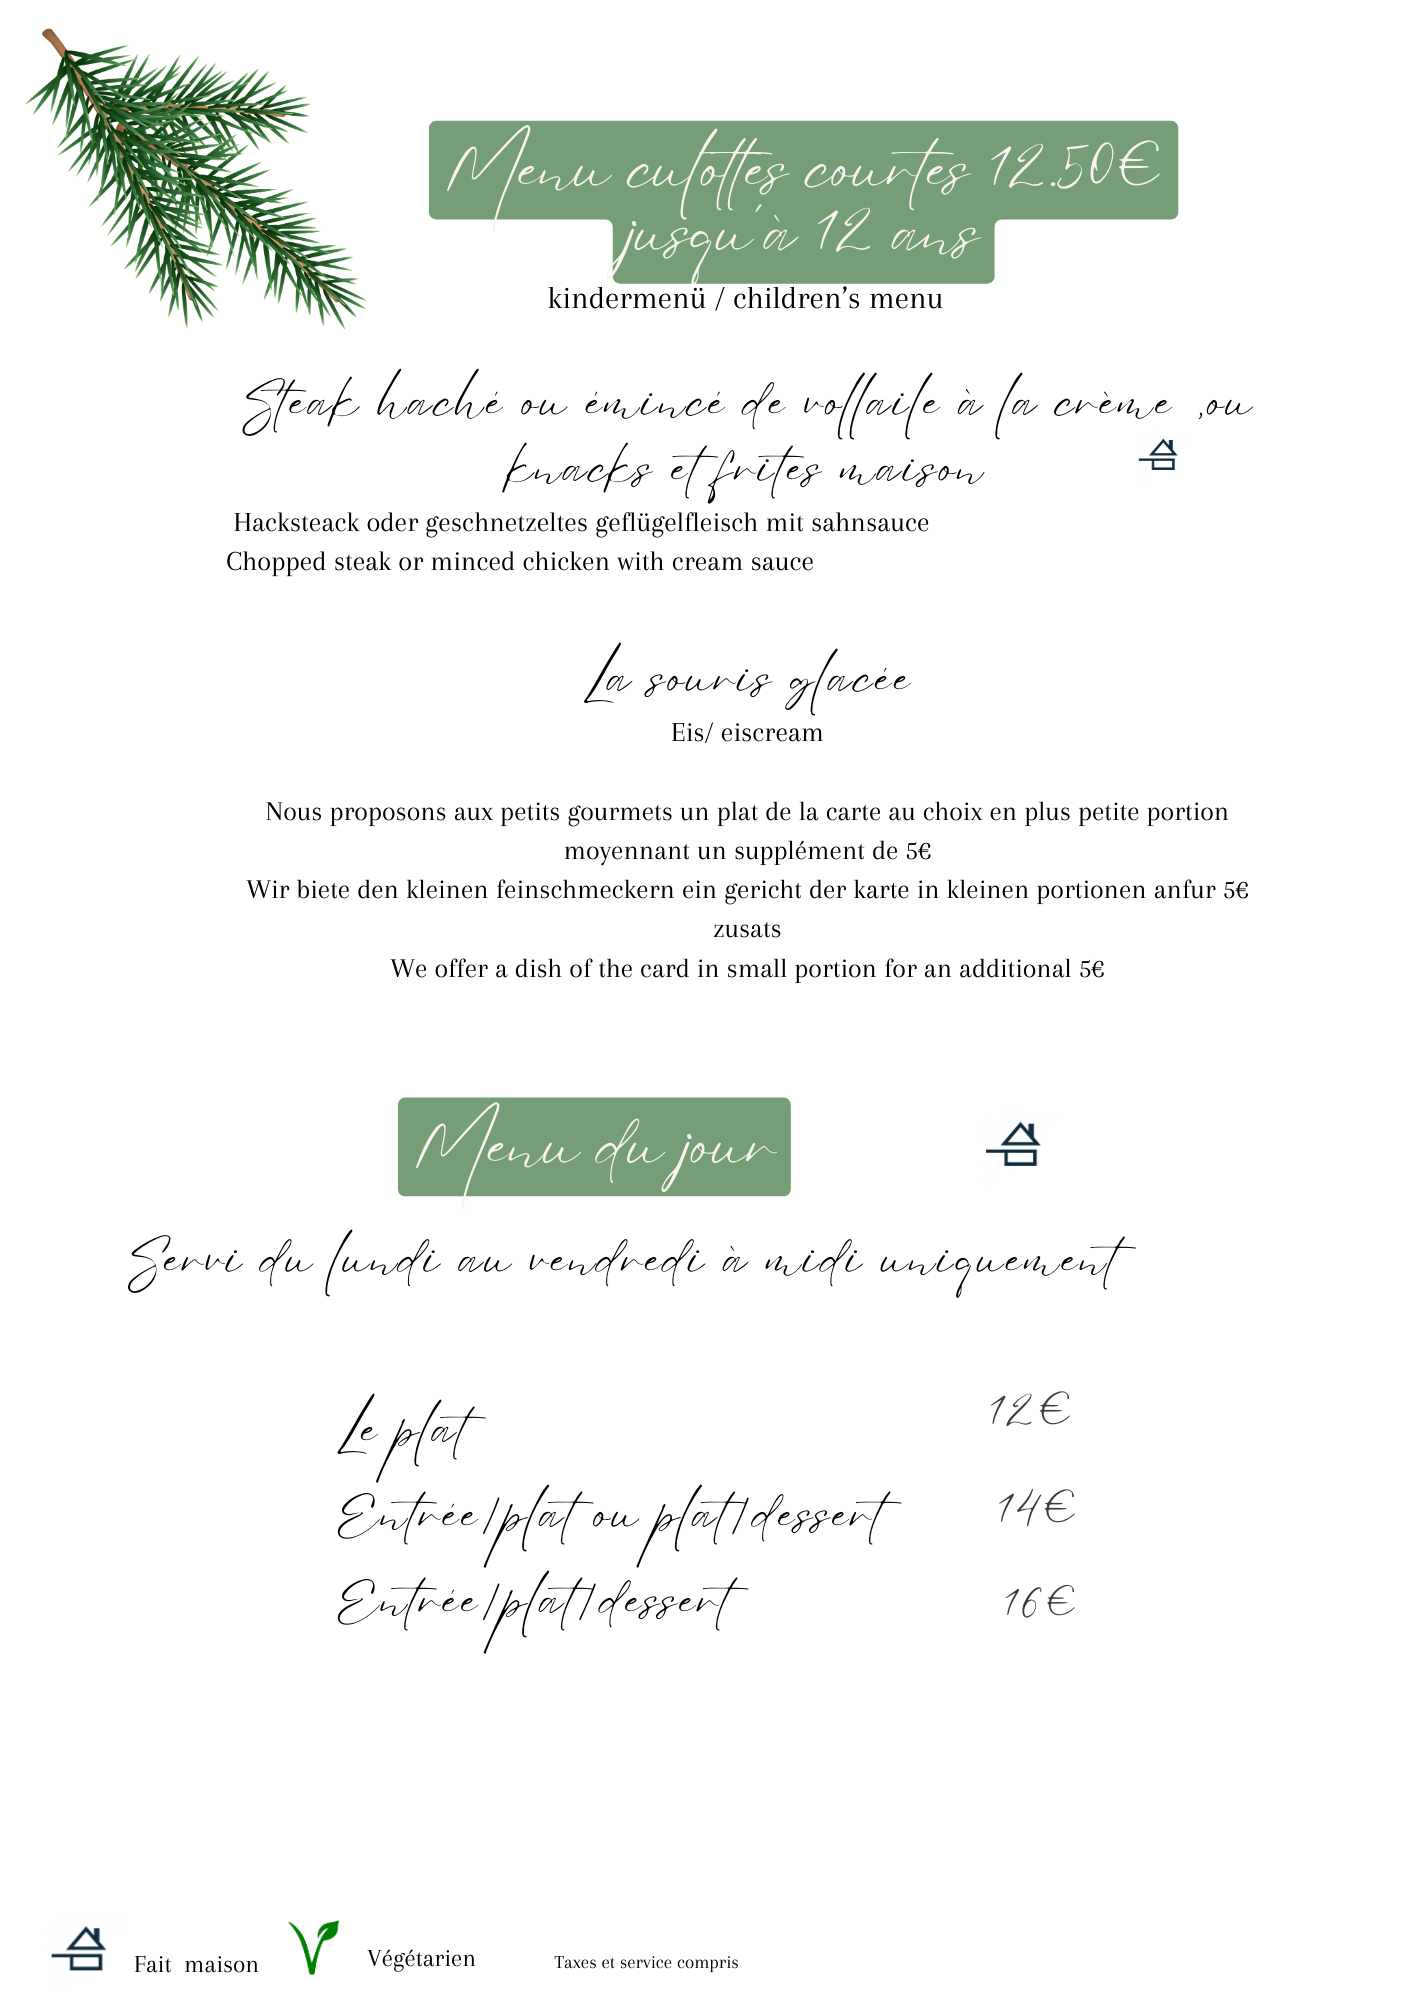 Menu culottes courtes 12.50€
jusqu'à 12 ans
kindermenü / children’s menu
Steak haché ou émincé de vollaile à la crème ,ou
knacks et frites maison
Hacksteack oder geschnetzeltes geflügelfleisch mit sahnsauce
Chopped steak or minced chicken with cream sauce
La souris glacée
Eis/ eiscream
Nous proposons aux petits gourmets un plat de la carte au choix en plus petite portion
moyennant un supplément de 5€
Wir biete den kleinen feinschmeckern ein gericht der karte in kleinen portionen anfur 5€
zusats
We offer a dish of the card in small portion for an additional 5€
Menu du jour
Servi du lundi au vendredi à midi uniquement
Le plat 12€
Entrée/plat ou plat/dessert 14€
Entrée/plat/dessert 16€
Fait maison Végétarien Taxes et service compris